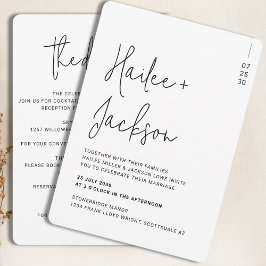 thed
THE CELEB
JOIN US FOR COCKTAIL
RECEPTION F
SKY
1257 WILLOWE
FOR YOUR CONVE
PLEASE BOOK
RESERVA
Hailee +
Jackson
07
25
30
TOGETHER WITH THEIR FAMILIES
HAILEE MILLER & JACKSON LOWE INVITE
YOU TO CELEBRATE THEIR MARRIAGE
25 JULY 2030
AT 3 O'CLOCK IN THE AFTERNOON
STONEBRIDGE MANOR
1234 FRANK LLOYD WRIGHT, SCOTTSDALE AZ